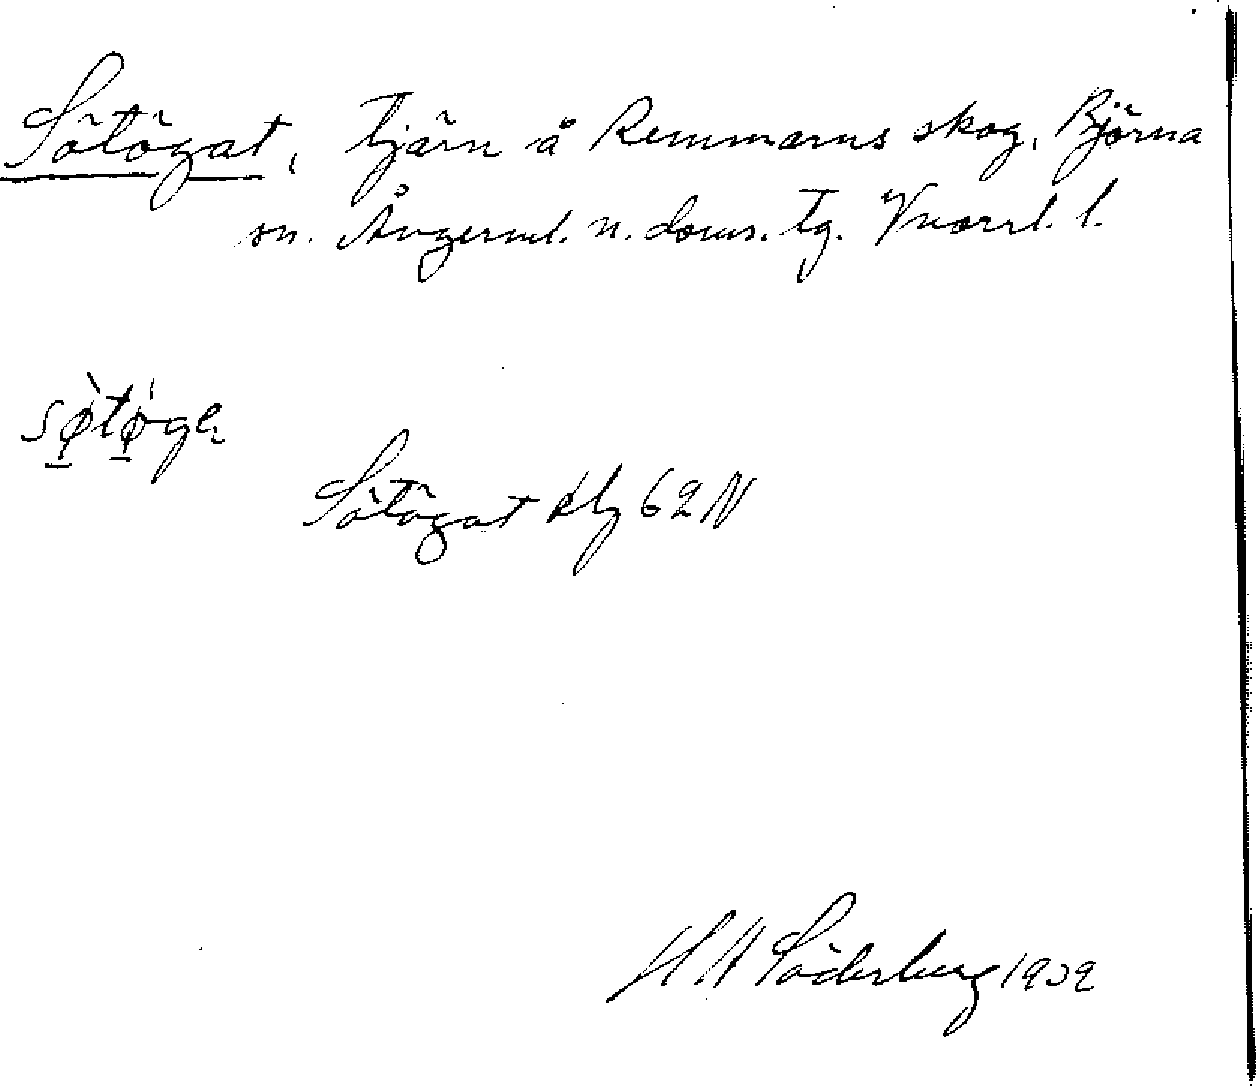 Sötögat, tjärn å Remmarns skog, Björna
sn. Ångerml. n. doms. tg. Vnorrl. l.
sø̀tø̍ge
Sötögat Hlg 62 N
H W Söderberg 1932